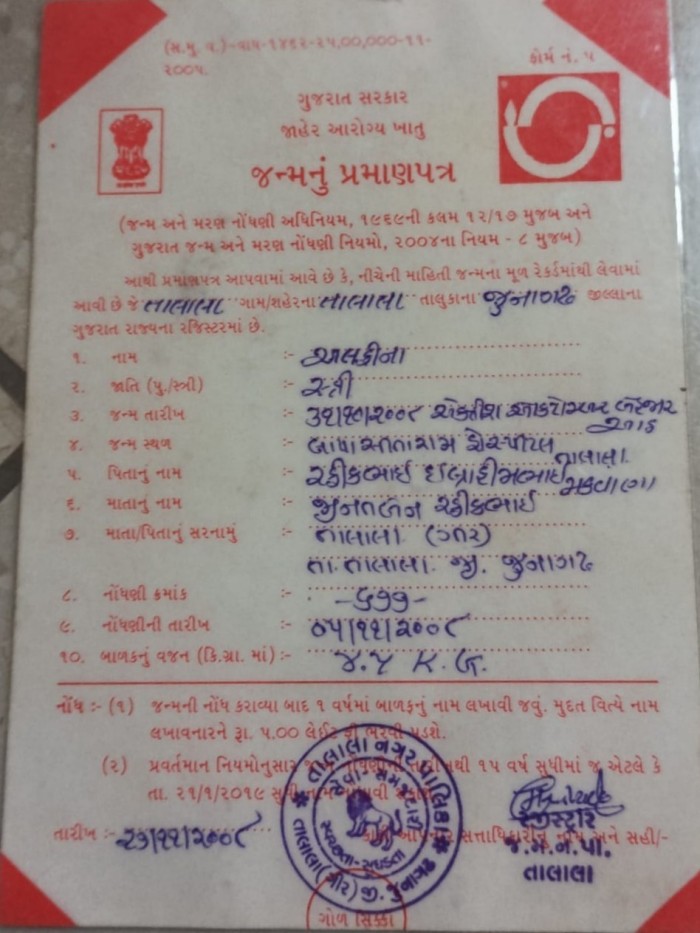 (સ.મુ. વ.)-વાય-૧૪૬૨-૨૫,૦૦,૦૦૦-૧૧-
૨૦૦૫.
ફોર્મ નં. ૫
ગુજરાત સરકાર
જાહેર આરોગ્ય ખાતુ
જન્મનું પ્રમાણપત્ર
(જન્મ અને મરણ નોંધણી અધિનિયમ, ૧૯૬૯ની કલમ ૧૨/૧૭ મુજબ અને
ગુજરાત જન્મ અને મરણ નોંધણી નિયમો, ૨૦૦૪ના નિયમ - ૮ મુજબ)
આથી પ્રમાણપત્ર આપવામાં આવે છે કે, નીચેની માહિતી જન્મના મૂળ રેકર્ડમાંથી લેવામાં
આવી છે જે તાલાલા ગામ/શહેરના તાલાલા તાલુકાના જુનાગઢ જીલ્લાના
ગુજરાત રાજ્યના રજિસ્ટરમાં છે.
૧. નામ :- અલફીના
૨. જાતિ (પુ./સ્ત્રી) :- સ્ત્રી
૩. જન્મ તારીખ :- ૩૧/૧૦/૨૦૦૮ એકત્રીશ ઓકટોમ્બર બેહજાર
આઠ
૪. જન્મ સ્થળ :- બાપા સતારામ હોસ્પીટલ તાલાલા
૫. પિતાનું નામ :- રફીકભાઈ ઇબ્રાહીમભાઈ મકવાણા
૬. માતાનું નામ :- જીનતબેન રફીકભાઈ
૭. માતા/પિતાનું સરનામું :- તાલાલા (ગીર)
તા. તાલાલા જી. જુનાગઢ
૮. નોંધણી ક્રમાંક :- -૬૭૭-
૯. નોંધણીની તારીખ :- ૦૫/૧૧/૨૦૦૮
૧૦. બાળકનું વજન (કિ.ગ્રા. માં) :- ૪.૫ K.G.
નોંધ :- (૧) જન્મની નોંધ કરાવ્યા બાદ ૧ વર્ષમાં બાળકનું નામ લખાવી જવું. મુદત વિત્યે નામ
લખાવનારને રૂા. ૫.૦૦ લેઈટ ફી ભરવી પડશે.
(૨) પ્રવર્તમાન નિયમોનુસાર નોંધણીની તારીખથી ૧૫ વર્ષ સુધીમાં જ એટલે કે
તા. ૨૧/૧/૨૦૧૯ સુધી
તારીખ :- ૨૬/૧૧/૨૦૦૮ સત્તાધિકારીનું નામ અને સહી/-
તાલાલા નગર પાલિકા
સેવા-સમૃદ્ધિ
સ્વચ્છતા-સફળતા
તાલાલા (ગીર) જી. જુનાગઢ
રજીસ્ટ્રાર
જ.મ.ન.પા.
તાલાલા
ગોળ સિક્કો